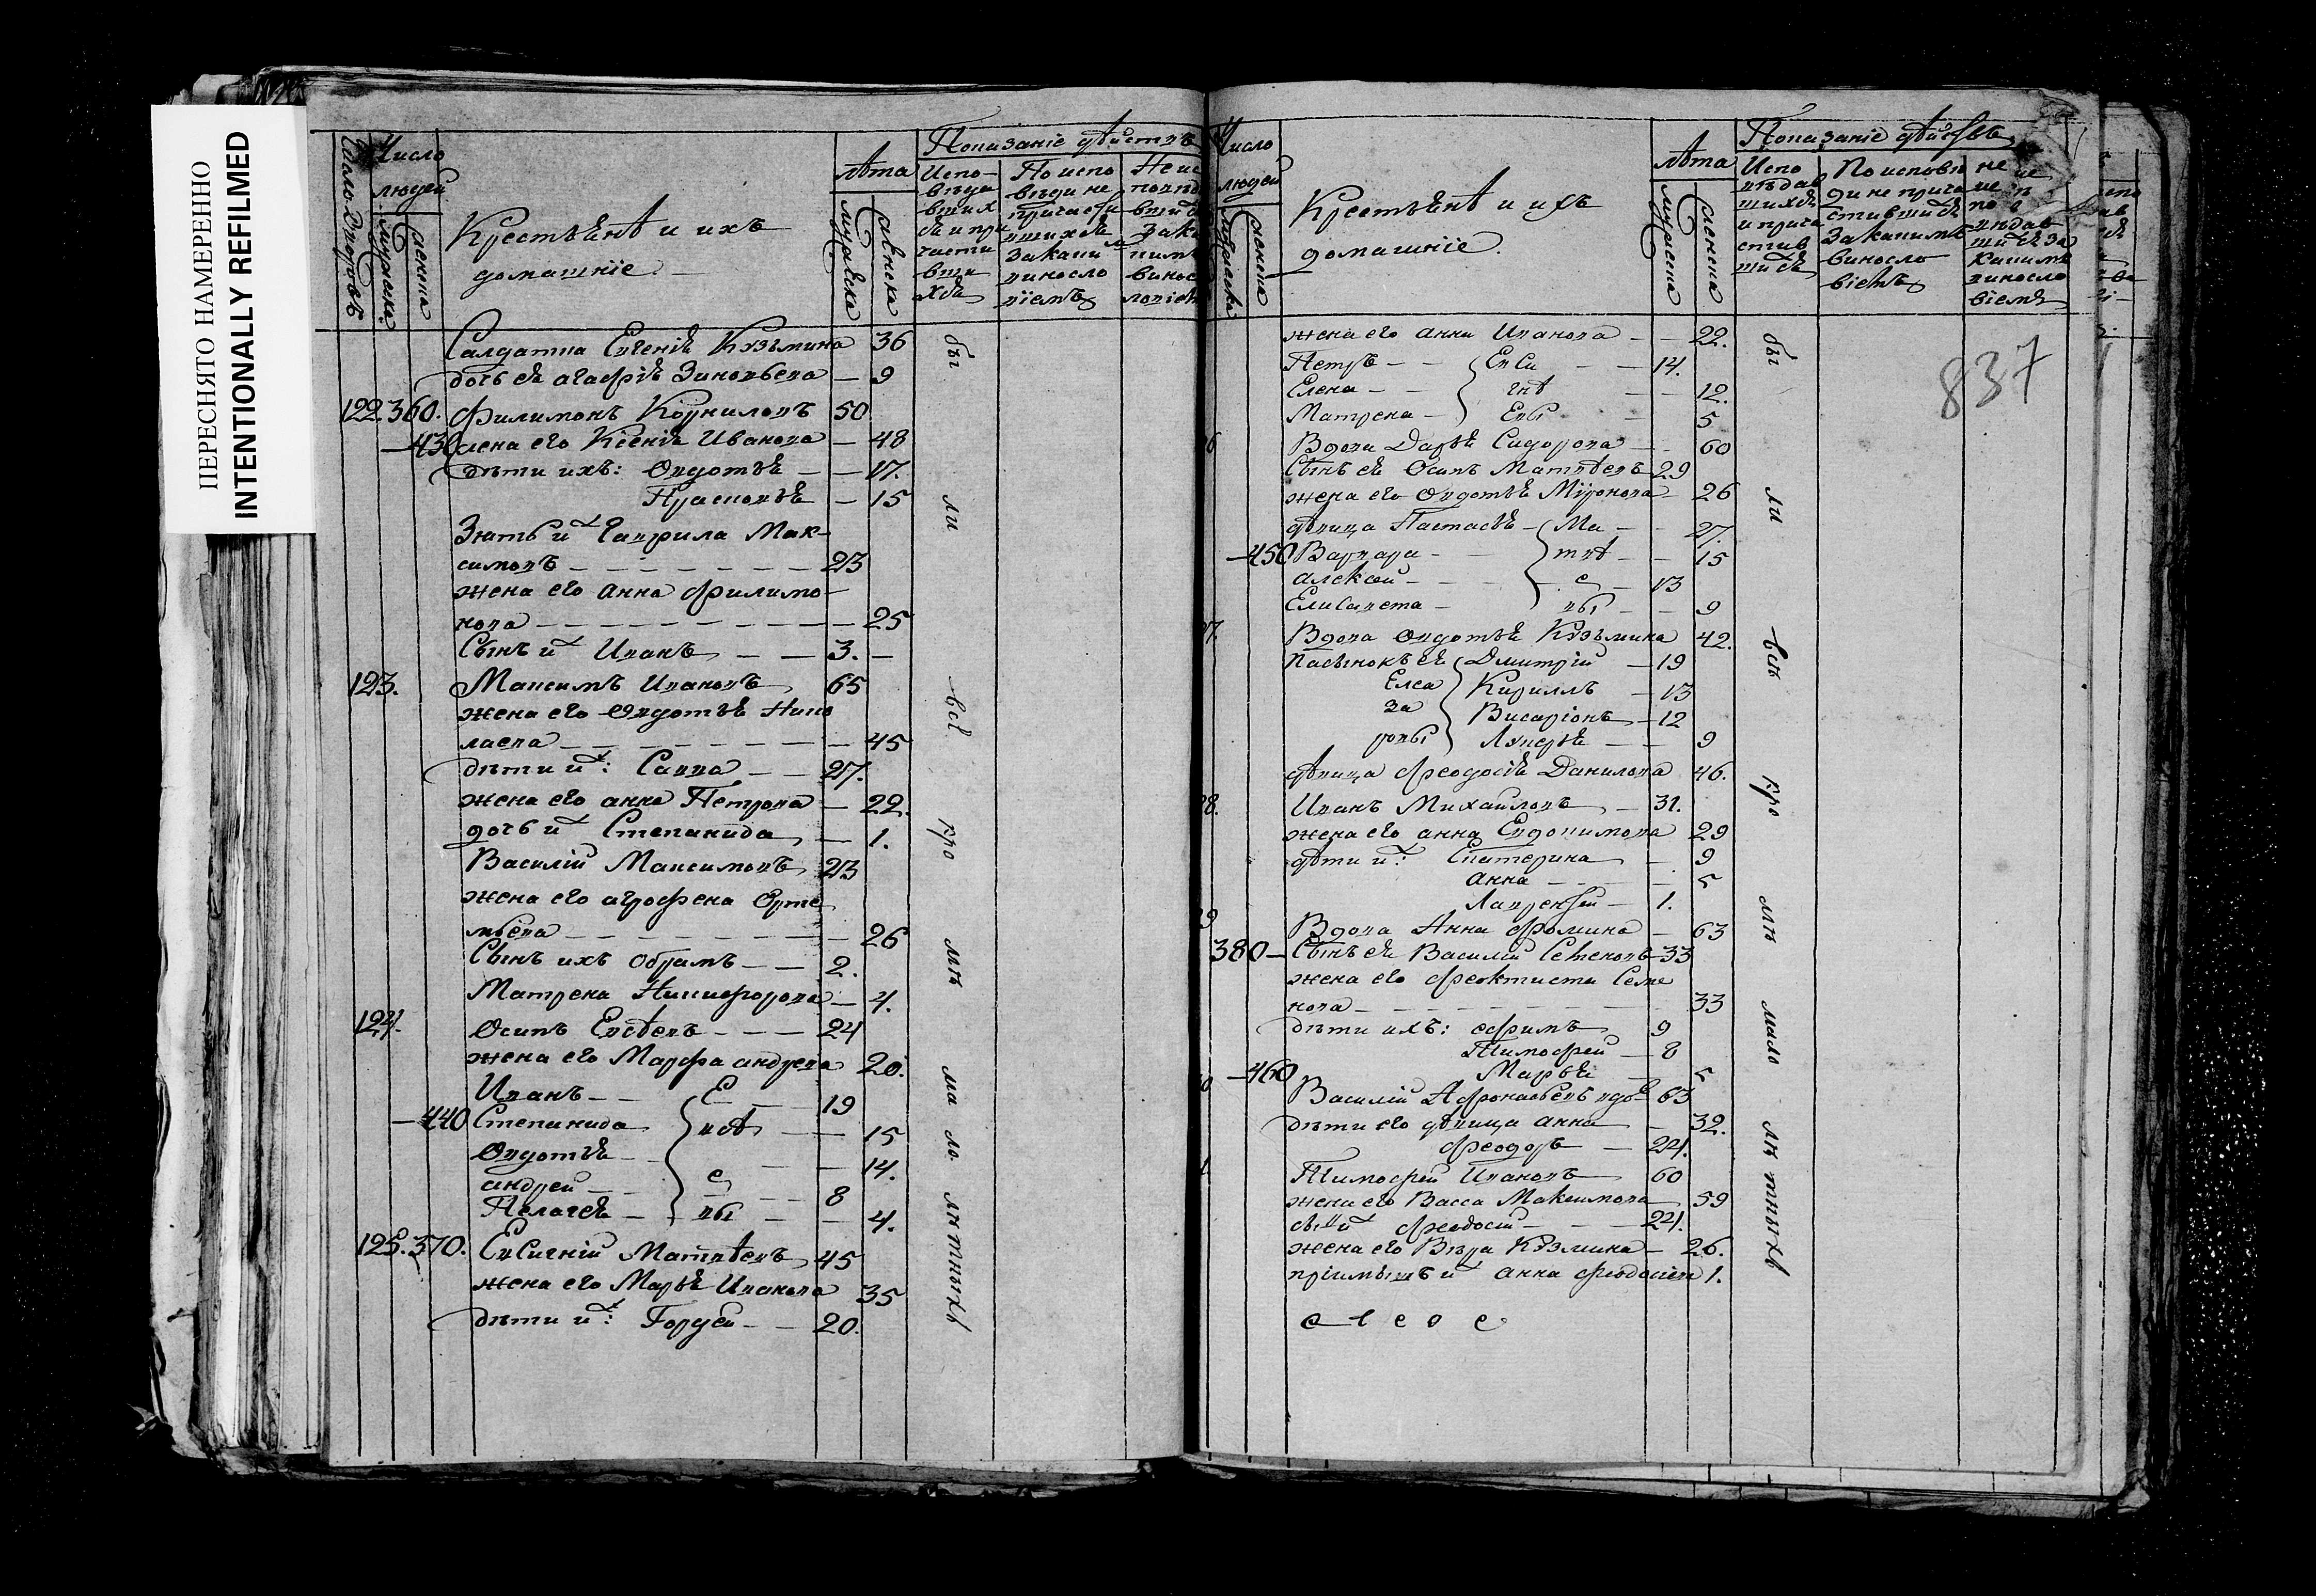 ПЕРЕСНЯТО НАМЕРЕННО
INTENTIONALLY REFILMED
Число Дворовъ
Число людей
мужеска
женска
Крестьянѣ и ихъ
домашніе
лѣта
мужеска
женска
Показаніе дѣйствъ
Испо-
вѣда
вших
ся и при
части
вши
хся
По испо
вѣди не
причасти
вшихся
за каки
виносло
віемъ
Салдатка Евгенія Кузьмина 36
дочь ея агафія Зиновьева — 9
122. 360. Филимонъ Корниловъ 50
— 430 жена его Ксенія Иванова — 48
дѣти ихъ: Овдотья — — 17.
Прасковья — 15
Зять и Гаврила Мак-
симовъ — — — — — — — 23
жена его Анна Филимо-
нова — — — — — — — — — 25
Сынъ и Иванъ — — 3. —
123. Максимъ Ивановъ 65
жена его Овдотья Нико
лаева — — — — — — — 45
дѣти и: Савва — — 27.
жена его анна Петрова — 22.
дочь и Степанида — 1.
Василій Максимовъ 23
жена его агрофена Орте
мьева — — — — — — — 26
Сынъ ихъ Обрамъ — — 2.
Матрена Никифорова — 4.
124. Осипъ Евсѣевъ — — — 24
жена его Марфа андреева 20.
Иванъ — — Е — 19
— 440 Степанида всѣ — — 15
Овдотья — — — 14.
андрей — — е — — 8
Пелагея — вы — — 4.
125. 370. Евсигній Матвѣевъ 45
жена его Марья Иванова 35
дѣти и: Гордей — — 20.
бы
ли
всѣ
кро
мѣ
ма ло
лѣтныхъ
Число
людей
мужеска
женска
Крестьянѣ и ихъ
домашніе.
лѣта
мужеска
женска
Показаніе дѣйствъ
Испо
вѣдав
шихся
и прича
стив
шихся
По исповѣ
ди не прича
стившихся
За какимъ
виносло
віемъ
837
жена его Анна Иванова — — 22.
Петръ — — Евси — — 14.
Елена — — гнѣ — — 12.
Матрена — евы — 5
6 Вдова Дарья Сидорова — — 60
Сынъ ея Осипъ Матвѣевъ 29
жена его Овдотья Миронова 26
дѣвица Настасья — Ма — — 27.
— 450 Варвара — — твѣ — — 15
алексѣй — — — е — 13
Елисавета — вы — — 9
7. Вдова Овдотья Кузьмина 42.
Пасынокъ ея Дмитрій — 19
Елеа Кириллъ — 13
за Висаріонъ — 12
ровы Лукерья — — 9
дѣвица Феодосія Данилова 46.
28. Иванъ Михайловъ — 31.
жена его анна Евдокимова 29
дѣти и: Екатерина — 9
анна — — — 5
Лаврентей — 1.
9 Вдова Анна Фомина — 63
380 — Сынъ ея Василій Семеновъ 33
жена его Феоктиста Семе
нова — — — — — — 33
дѣти ихъ: ефимъ 9
Тимофей — 8
— 460 Марья — 5
0 Василій Афонасьевъ вдов 63
дѣти его дѣвица анна — 32.
Феодоръ — 24.
1. Тимофей Ивановъ 60
жена его Васса Максимова 59
сынъ и Феодосій — — — 24.
жена его Вѣра Кузмина — 26.
пріимышъ и анна феодосіева 1.
бы
ли
всѣ
кро
мѣ
мало
лѣ тныхъ